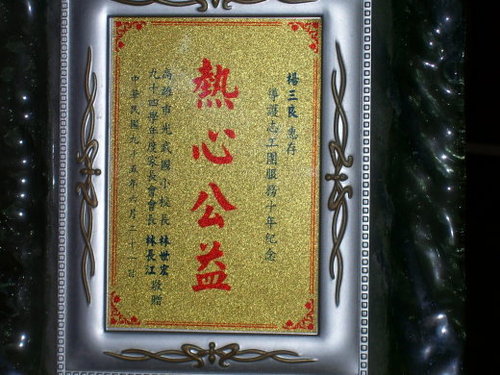 楊三良 惠存
導護志工團服務十年紀念
熱心公益
高雄市光武國小校長 林世宏
九十四學年度家長會會長 林長江 敬贈
中華民國九十五年六月二十 日